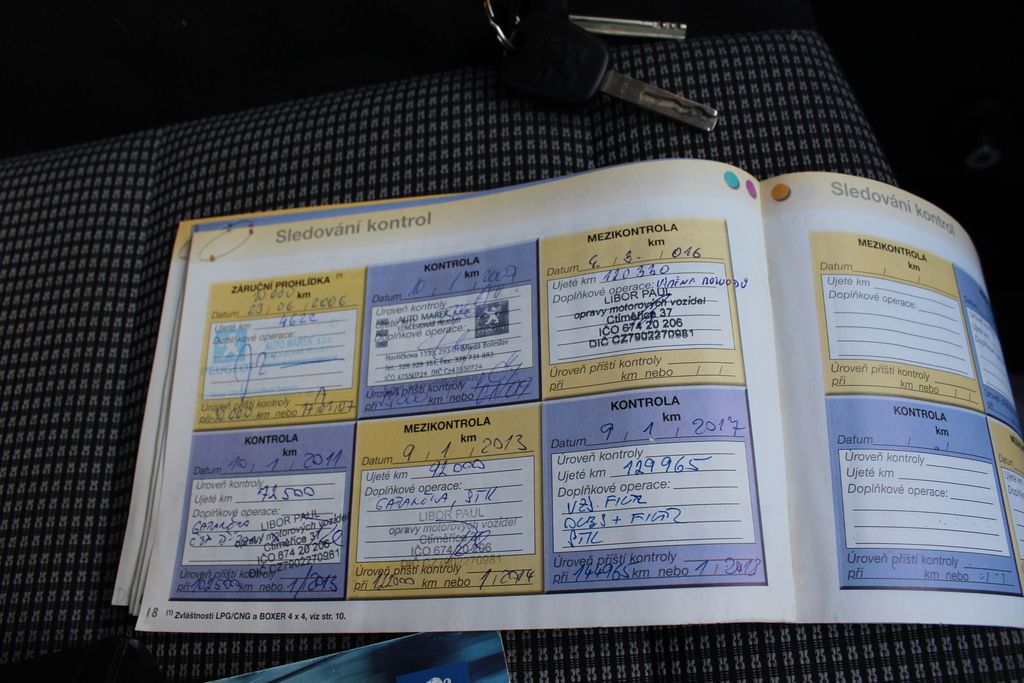 Sledování kontrol
ZÁRUČNÍ PROHLÍDKA (1)
10 000 km
Datum 23, 06, 2006
Ujeté km 4622
Doplňkové operace:
AUTO MAREK, s.r.o.
PEUGEOT
Úroveň příští kontroly
při km nebo 11/01/07
KONTROLA
km
Datum 10, 1, 2007
Úroveň kontroly
Ujeté km
AUTO MAREK
KONCESIONÁŘ PEUGEOT
Doplňkové operace:
Havlíčkova 1332, 293 01 Mladá Boleslav
tel.: 326 329 351, Fax: 326 731 883
IČO 47550724, DIČ CZ47550724
Úroveň příští kontroly
při km nebo
MEZIKONTROLA
km
Datum 3. 016
Ujeté km 120320
Doplňkové operace:
LIBOR PAUL
opravy motorových vozidel
Ctiměřice 37
IČO 674 20 206
DIČ CZ7902270981
Úroveň příští kontroly
při km nebo / /
KONTROLA
km
Datum 10, 1, 2011
Úroveň kontroly
Ujeté km 72500
Doplňkové operace:
GARANČKA
LIBOR PAUL
opravy motorových vozidel
Ctiměřice 37
IČO 674 20 206
DIČ CZ7902270981
Úroveň příští kontroly
při 102500 km nebo 1/2013
MEZIKONTROLA
km
Datum 9, 1, 2013
Ujeté km 92000
Doplňkové operace:
GARANČKA, STK
LIBOR PAUL
opravy motorových vozidel
Ctiměřice 37
IČO 674 20 206
DIČ CZ7902270981
Úroveň příští kontroly
při 112000 km nebo 1/2014
KONTROLA
km
Datum 9, 1, 2017
Úroveň kontroly
Ujeté km 129965
Doplňkové operace:
VZS. FILTR
OLEJ + FILTR
STK
Úroveň příští kontroly
při 144965 km nebo 1, 2018
18 (1) Zvláštnosti LPG/CNG a BOXER 4 x 4, viz str. 10.
Sledování kontrol
MEZIKONTROLA
km
Datum / /
Ujeté km
Doplňkové operace:
Úroveň příští kontroly
při km nebo / /
KONTROLA
km
Datum / /
Úroveň kontroly
Ujeté km
Doplňkové operace:
Úroveň příští kontroly
při km nebo / /